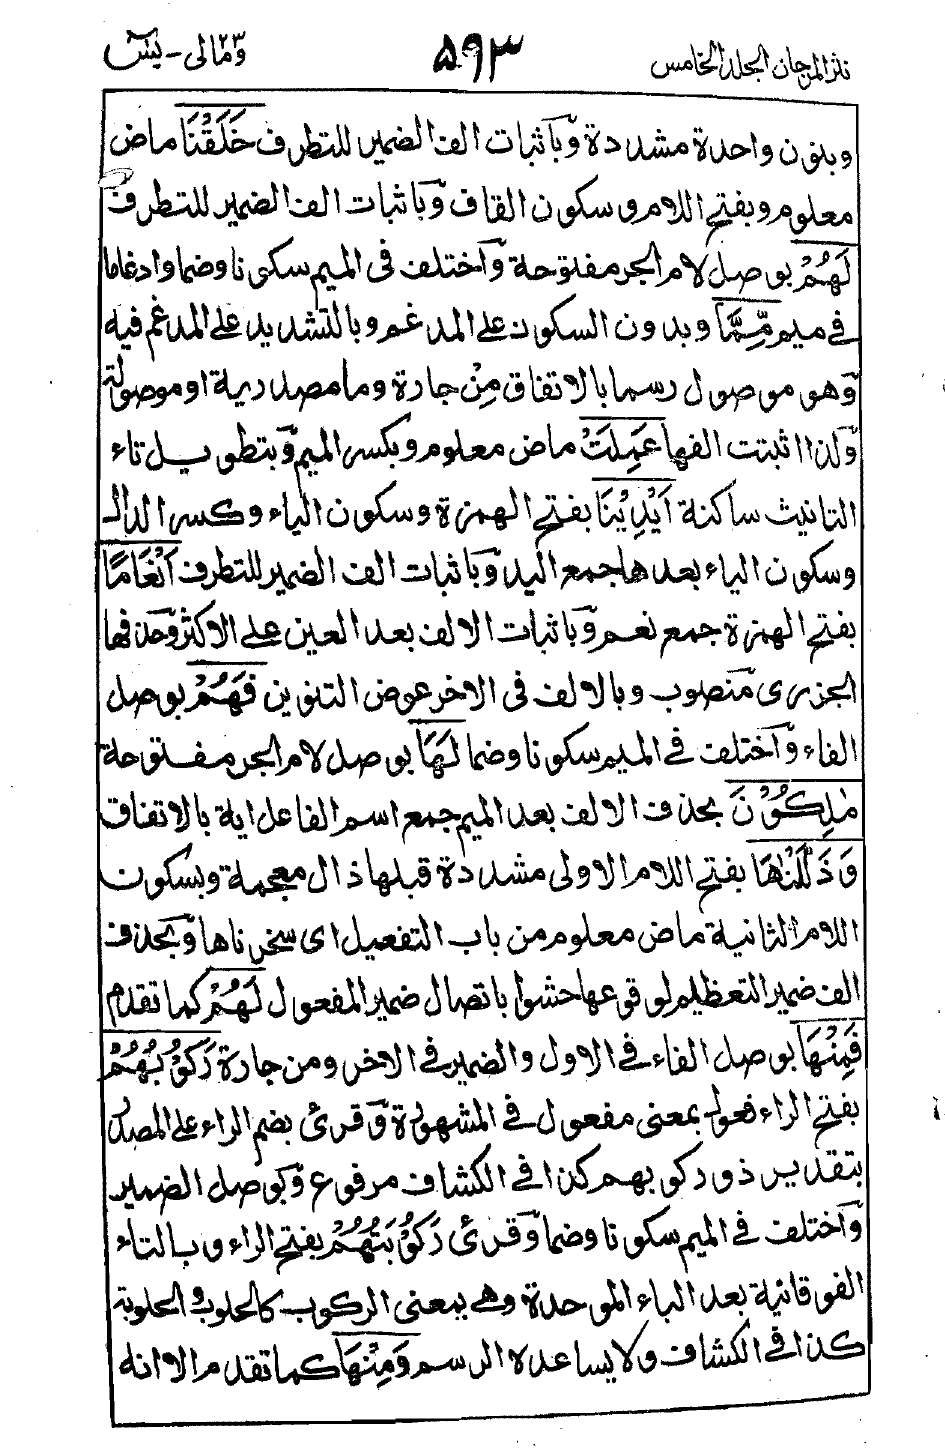 نثر المرجان المجلد الخامس ۵۹۳ ومالى - يٰسٓ
وبنون واحدة مشددة وَّباثبات الف الضمير للتطرف خَلَقْنَا ماض
معلوم وبفتح اللام وسكون القاف وَّباثبات الف الضمير للتطرف
لَهُمْ بوصل لام الجر مفتوحة وَّاختلف فى الميم سكونا وضما وادغاما
فى ميم مِّمَّا وبدون السكون على المدغم وبالتشديد على المدغم فيه
وَّهو موصول رسما بالاتفاق مِنْ جارة وما مصدرية او موصولة
وَّلذا اثبتت الفها عَمِلَتْ ماض معلوم وبكسر الميم وَّبتطويل تاء
التانيث ساكنة اَيْدِيْنَا بفتح الهمزة وسكون الياء وكسر الدال
وسكون الياء بعدها جمع اليد وَّباثبات الف الضمير للتطرف اَنْعَامًا
بفتح الهمزة جمع نعم وَّباثبات الالف بعد العين على الاكثر وَّحذفها
الجزرى مَّنصوب وبالالف فى الاخر عوض التنوين فَهُمْ بوصل
الفاء وَّاختلف فى الميم سكونا وضما لَهَا بوصل لام الجر مفتوحة
مٰلِكُوْنَ بحذف الالف بعد الميم جمع اسم الفاعل اية بالاتفاق
وَذَلَّلْنٰهَا بفتح اللام الاولى مشددة قبلها ذال معجمة وبسكون
اللام الثانية ماض معلوم من باب التفعيل اى سخرناها وَّبحذف
الف ضمير التعظيم لوقوعها حشوا باتصال ضمير المفعول لَهُمْ كما تقدم
فَمِنْهَا بوصل الفاء فى الاول والضمير فى الاخر ومن جارة رَكُوْبُهُمْ
بفتح الراء فعول بمعنى مفعول فى المشهورة وَّقرئ بضم الراء على المصدر
بتقدير ذو ركوبهم كذا فى الكشاف مرفوع وَّبوصل الضمير
وَّاختلف فى الميم سكونا وضما وَّقرئ رَكُوْبَتُهُمْ بفتح الراء وبالتاء
الفوقانية بعد الباء الموحدة وهى بمعنى الركوب كالحلوب والحلوبة
كذا فى الكشاف ولا يساعده الرسم وَمِنْهَا كما تقدم الا انه